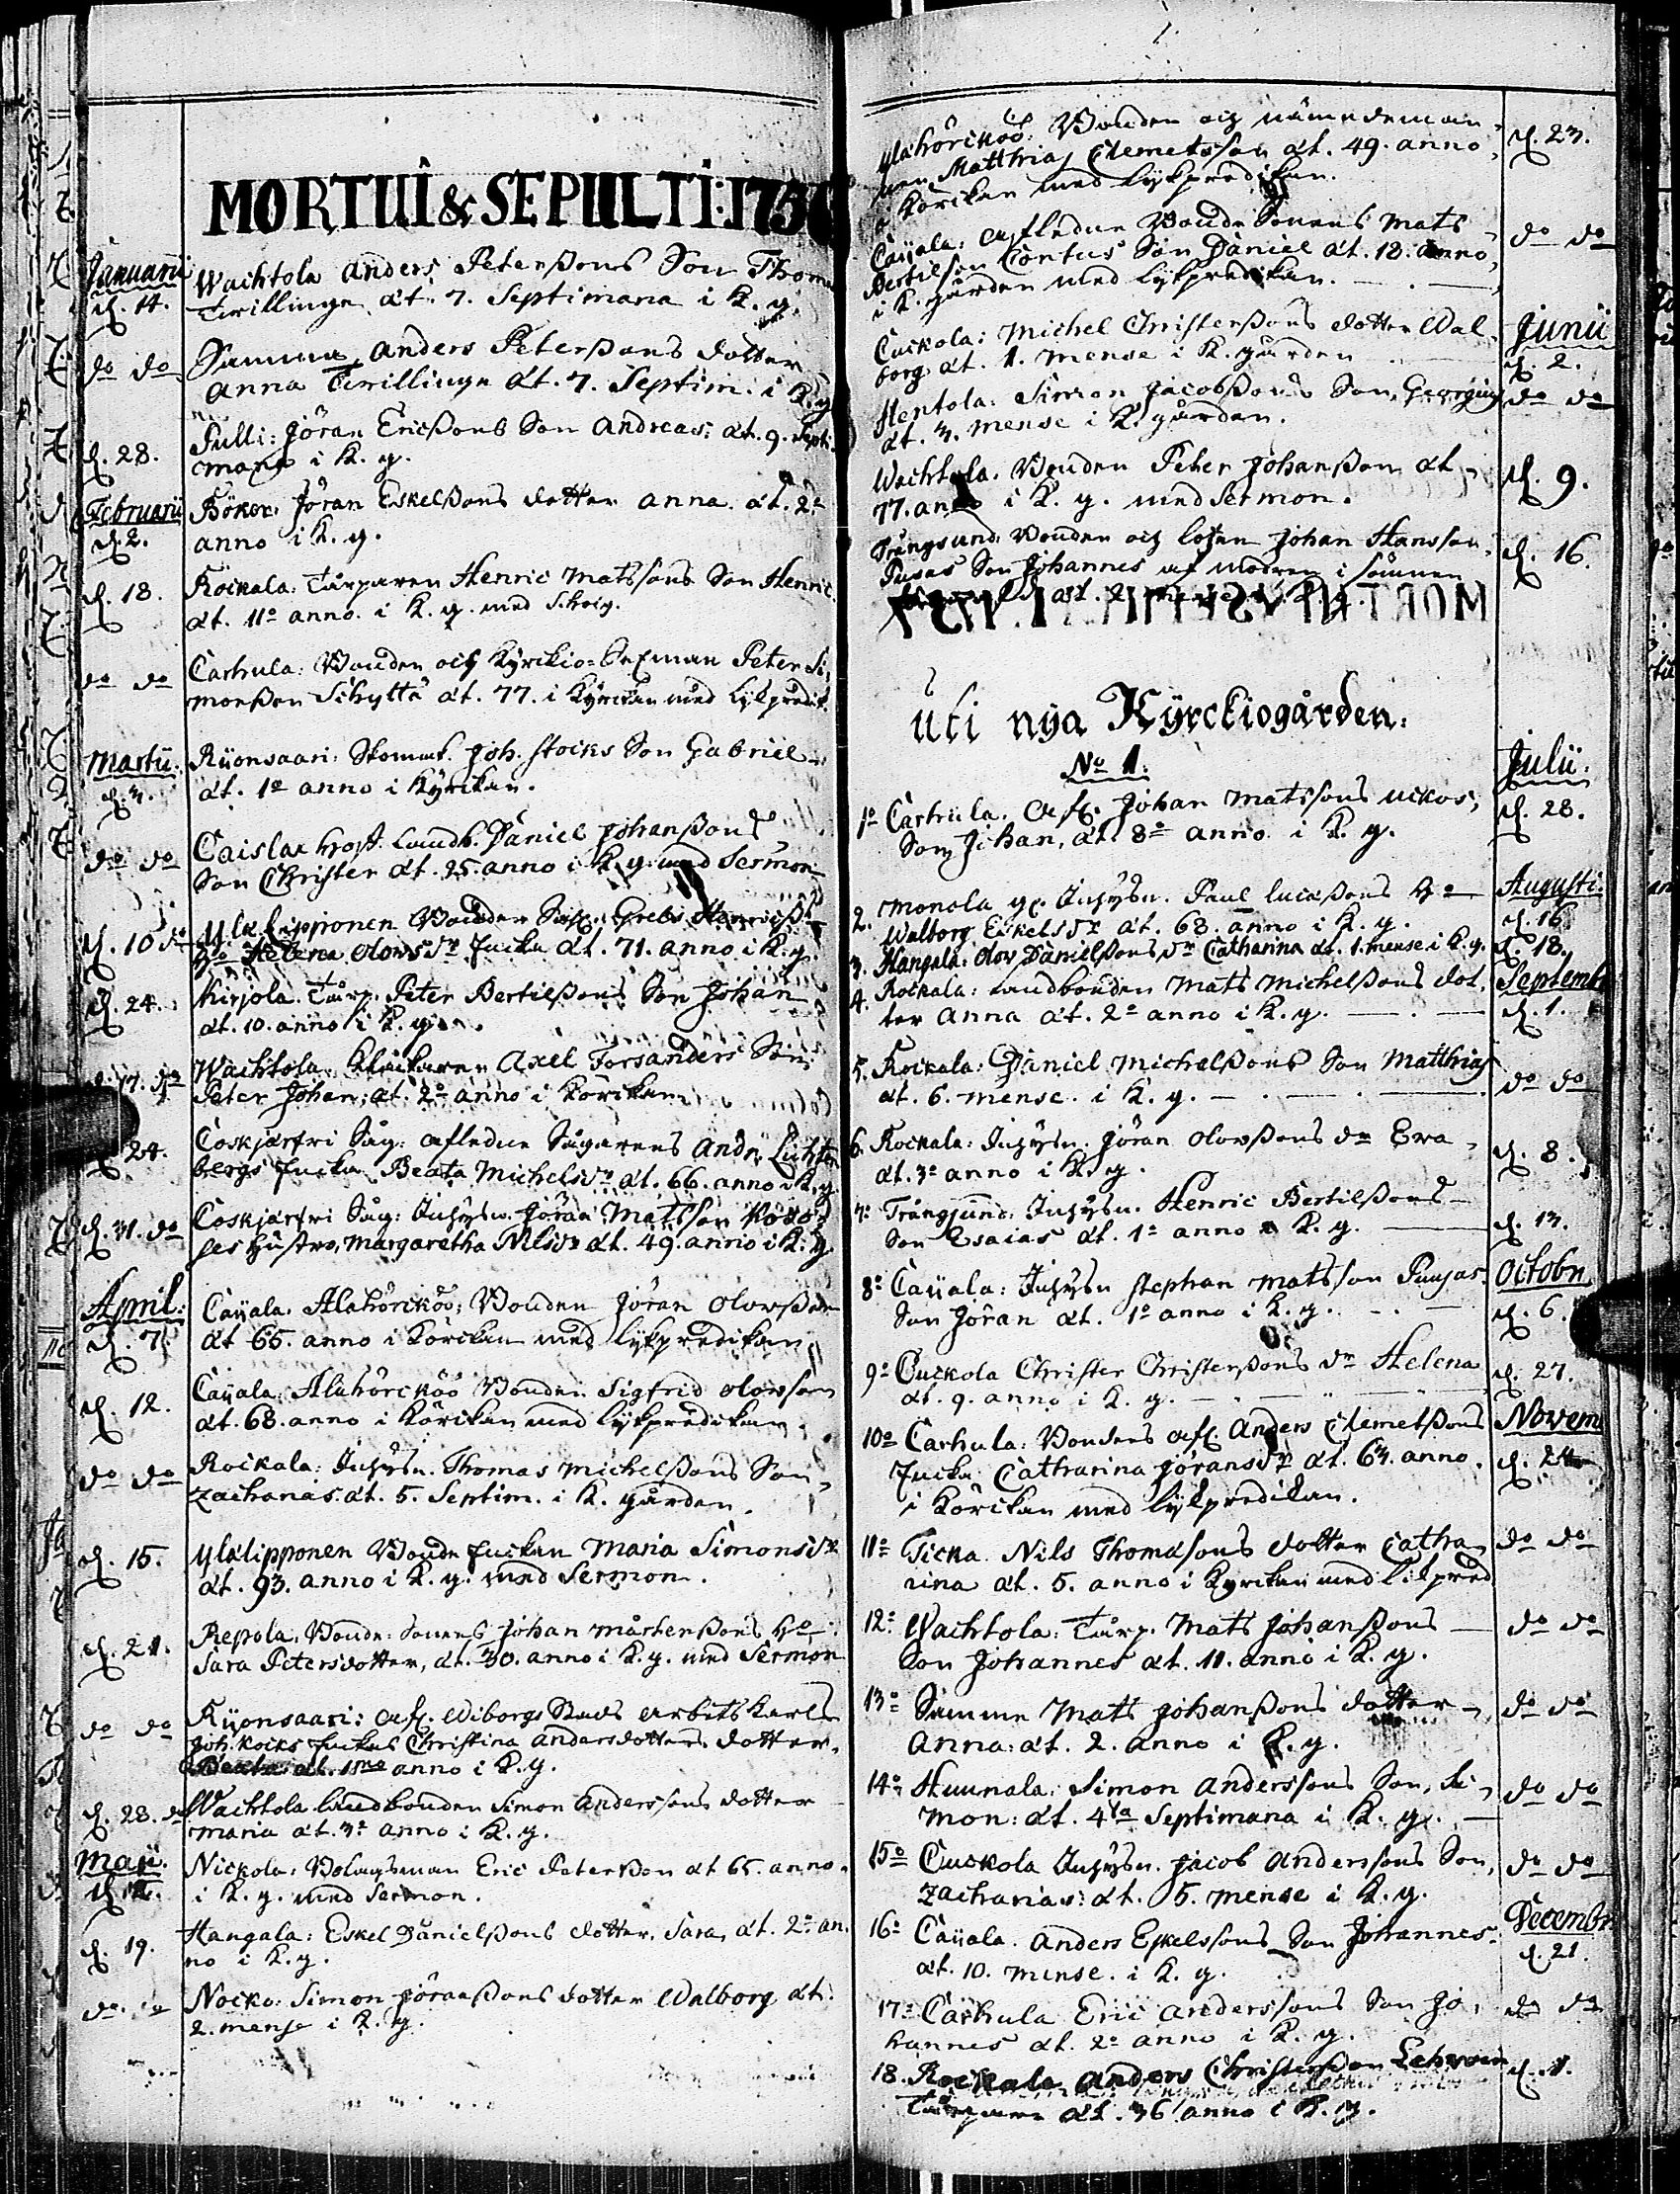 MORTUI & SEPULTI: 175
Januarii
d. 14.
Wachtola Anders Peterßons Son Thom
Twillinge æt. 7. Septimana i K. g.
do do
Samma, Anders Peterßons dotter
Anna Twillinge æt. 7. Septim. i K. g
d. 28.
Pulli: Jöran Ericßons Son Andreas: æt. 9. Septi-
mana i K. g.
Februarii
d. 2.
Böker: Jöran Eskelßons dotter Anna. æt. 2o
anno i K. g.
d. 18.
Rockala: Tårparen Henric Matssons Son Henric.
æt. 11o anno. i K. g. med
do do
Carhula: Bonden och Kyrckio= Peter Si-
monßon Schytta æt. 77. i Kyrckan med Lykpredik.
Martii.
d. 3.
Riionsaari: Joh. Stocks Son Gabriel
æt. 1o anno i Kyrckan.
do do
Caislax hofs. Landb. Daniel Johanßons
Son Christer æt. 25. anno i K. g. med Sermon
d. 10 do
Ylälipponen Bonden Grels Henricß.
Helena Olovsdr Encka æt. 71. anno i K. g.
d. 24.
Kirjola. Tårp. Peter Bertilßons Son Johan
æt. 10. anno i K. g.
d. 17. do
Wachtola. Klåckaren Axel Forsanders Son
Peter Johan: æt. 2o anno i Körckan
24.
Coskjärfvi Såg: Afledne Sågarens Andr. Lichten
bergs Encka Beata Michelsdr æt. 66. anno i K. g
d. 31. do
Coskjärfvi Såg: Inhysn. Jöran Matsson
ses hustro, Margaretha Nilsdr æt. 49. anno i K. g.
April.
d. 7.
Caijala. Alahörcköö; Bonden Jöran Olovßon
æt 65. anno i Körckan med lykpredikan
d. 12.
Caijala: Alahörcköö Bonden Sigfrid Olovson
æt. 68. anno i Körckan med lykpredikan.
do do
Rockala: Inhysn. Thomas Michelßons Son,
Zacharias. æt. 5. Septim. i K. gården.
d. 15.
Ylälipponen Bonde Enckan Maria Simonsdr
æt. 93. anno i K. g. med Sermon.
d. 21.
Repola. Bonde: Sonens Johan Mårtenßons ho
Sara Petersdotter, æt. 30. anno i K. g. med Sermon
do do
Riionsaari: Afl. Wiborgs Stads Arbets Karls
Joh. Kocks Enckas Christina Andersdotters dotter.
Beata: æt. 1mo anno i K. g.
d. 28. do
Wachtola landbonden Simon Anderssons dotter
Maria æt. 3o anno i K. g.
Maji.
d. 12.
Nickola: Bolagsman Eric Peterßon æt 65. anno.
i K. g. med Sermon.
d. 19.
Hangala: Eskel Danielßons dotter, Sara, æt. 2o an-
no i K. g.
do. do
Nocko: Simon Jöranßons dotter Walborg æt.
2. mense i K. g.
Alahörcköö: Bonden och nämndeman-
nen Matthias Clemetsson æt. 49. anno
i Körckan med lykpredikan.
d. 23.
Caijala: Afledne Bonde Sonens Mats
Bertilson Contus Son Daniel æt. 18. anno,
i K. gården med lykpredikan.
do do
Cuckola: Michel Christerßons dotter Wal-
borg æt. 1. mense i K. gården
Junii
d. 2.
Hentola: Simon Jacobßons Son, Georgius
æt. 3. mense i K. gården.
do do
Wachtola. Bonden Peter Johanßon æt
77. anno i K. g. med Sermon.
d. 9.
Trångsund: Bonden och lotsen Johan Hansson
Pusas Son Johannes af modren i sömnen
æt. 2 mense i K. g.
d. 16.
uti nya Kÿrckiogården:
No 1.
1o Carhula. Afl. Johan Matssons Uckos,
Son Johan, æt. 8o anno i K. g.
Julii.
d. 28.
2. Monola gl. Inhysn. Paul Lucaßons ho
Walborg Eskelsdr æt. 68. anno i K. g.
Augusti.
d. 16
3. Hangala. Olov Danielßons dr Catharina æt. 1. mense i K. g.
d. 18.
4. Rockala: Landbonden Mats Michelßons dot-
ter Anna æt. 2o anno i K. g.
Septembr
d. 1.
5. Rockala: Daniel Michelßons Son Matthias
æt. 6. mense. i K. g.
do do
6. Rockala: Inhysn. Jöran Olovßons dr Eva
æt. 3o anno i K. g.
d. 8.
7o Trångsund. Inhysn. Henric Bertilßons
Son Esaias æt. 1o anno i K. g.
d. 13.
8o Caijala: Inhysn Stephan Matsson Punjas.
Son Jöran æt. 1o anno i K. g.
Octobr
d. 6.
9o Cuckola Christer Christerßons dr Helena
æt. 9. anno i K. g.
d. 27.
10o Carhula: Bondens afl. Anders Clemetßons
Encka Catharina Jöransdr æt. 63. anno.
i Körckan med lykpredikan.
Novem
d. 24
11o Ticka. Nils Thomasons dotter Catha-
rina æt. 5. anno i Kyrckan med likpred
do do
12o Wachtola: Tårp. Mats Johanßons
Son Johannes æt. 11. anno i K. g.
do do
13o Samme Mats Johanßons dotter
Anna: æt. 2. anno i K. g.
do do
14o Huunala: Simon Anderssons Son, Si-
mon: æt. 4ta Septimana i K. g.
do do
15o Cuckola Inhysn. Jacob Anderssons Son,
Zacharias: æt. 5. mense i K. g.
do do
16o Caijala. Anders Eskelssons Son Johannes.
æt. 10. mense. i K. g.
Decembr
d. 21.
17o Carhula Eric Anderssons Son Jo-
hannes æt. 2o anno i K. g.
do do
18. Rockala Anders Christerßon Lehvoin
Tårpare æt. 36 anno i K. g.
d. 1.